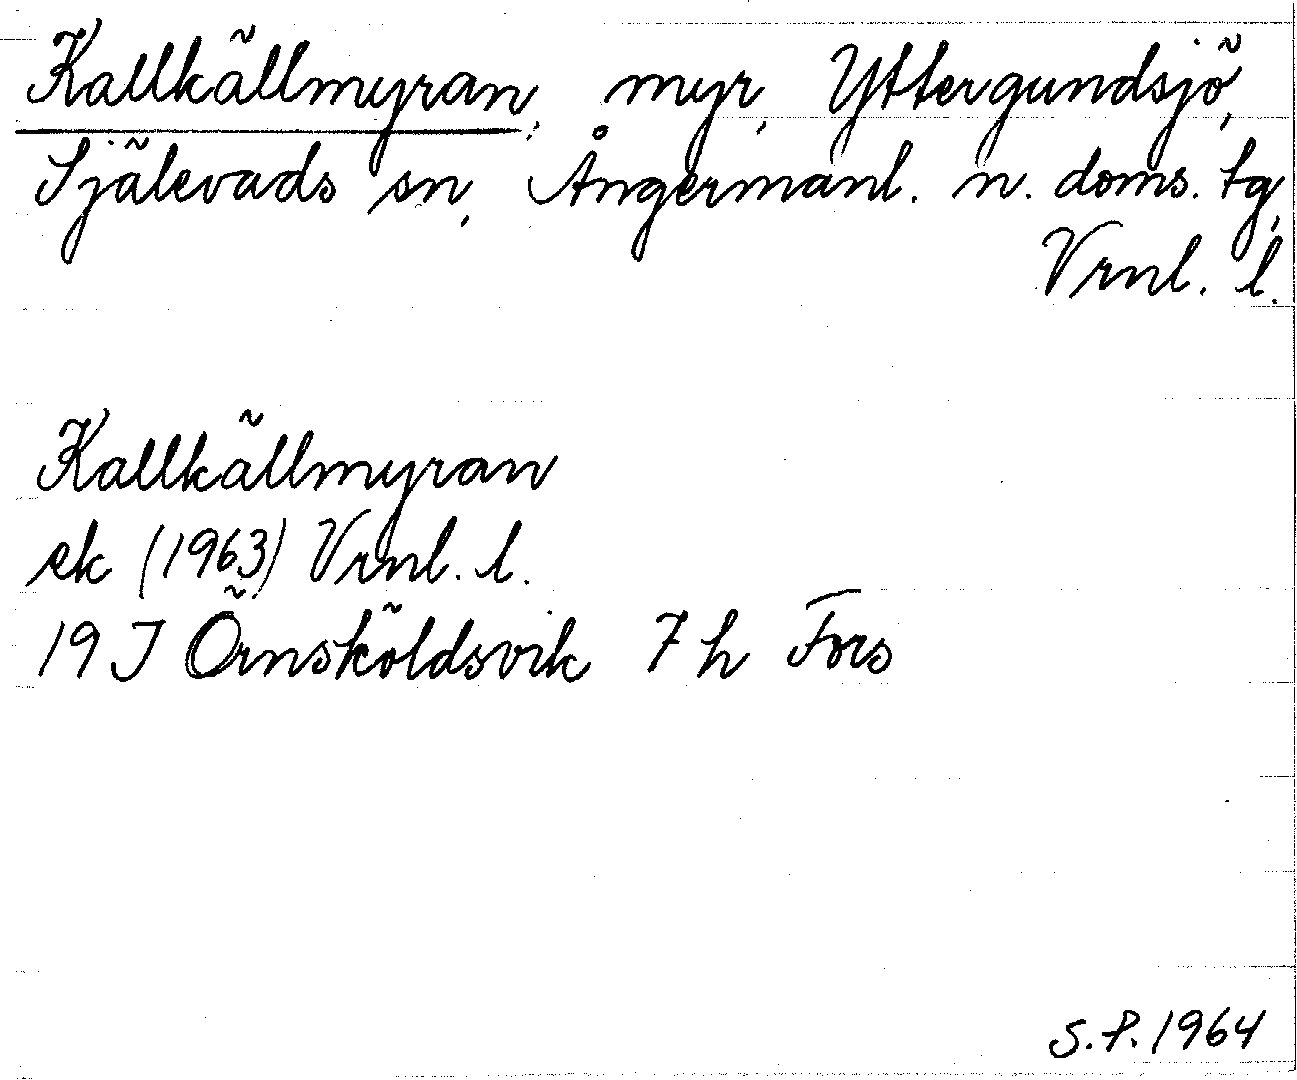 Kallkällmyran, myr, Yttergundsjö,
Själevads sn, Ångermanl. n. doms. tg,
Vrnl. l.
Kallkällmyran
ek (1963) Vrnl. l.
19 J Örnsköldsvik 7 h Fors
S.P. 1964